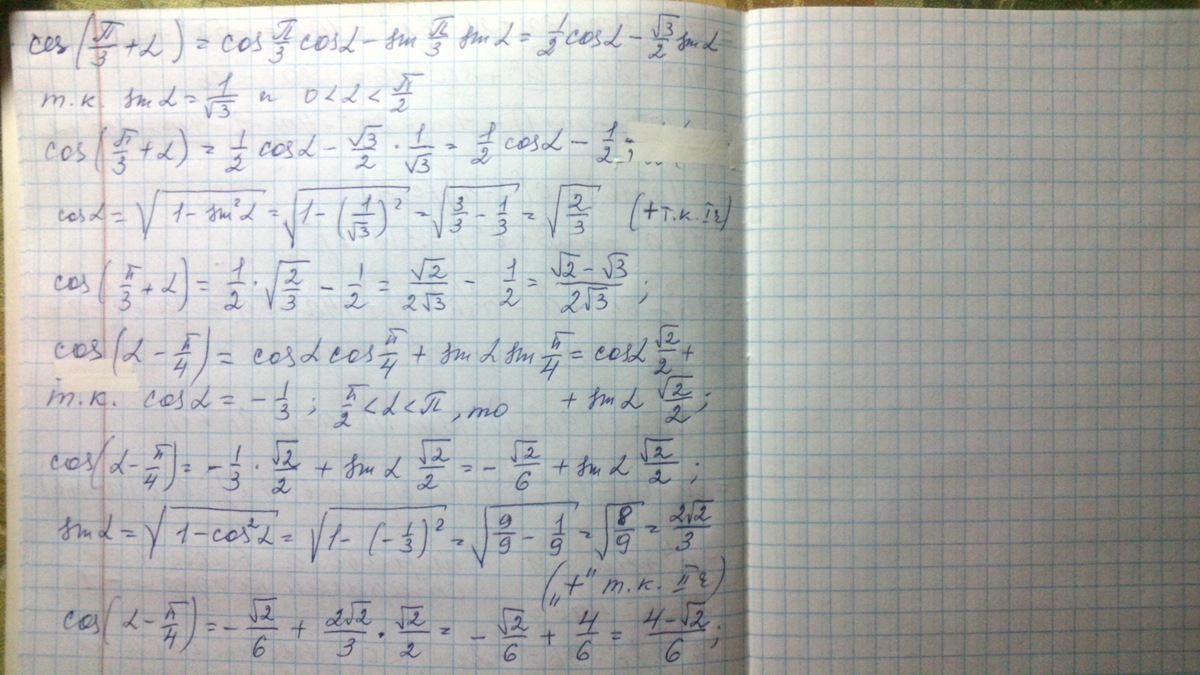 cos(π/3 + α) = cos π/3 cos α − sin π/3 sin α = 1/2 cos α − √3/2 sin α
т.к. sin α = 1/√3 и 0 < α < π/2
cos(π/3 + α) = 1/2 cos α − √3/2 · 1/√3 = 1/2 cos α − 1/2;
cos α = √(1 − sin² α) = √(1 − (1/√3)²) = √(3/3 − 1/3) = √(2/3) (+ т.к. I ч)
cos(π/3 + α) = 1/2 · √(2/3) − 1/2 = √2/(2√3) − 1/2 = (√2 − √3)/(2√3);
cos(α − π/4) = cos α cos π/4 + sin α sin π/4 = cos α √2/2 +
т.к. cos α = − 1/3; π/2 < α < π, то + sin α √2/2;
cos(α − π/4) = − 1/3 · √2/2 + sin α √2/2 = − √2/6 + sin α √2/2;
sin α = √(1 − cos² α) = √(1 − (−1/3)²) = √(9/9 − 1/9) = √(8/9) = 2√2/3
(„+" т.к. II ч)
cos(α − π/4) = − √2/6 + 2√2/3 · √2/2 = − √2/6 + 4/6 = (4 − √2)/6;